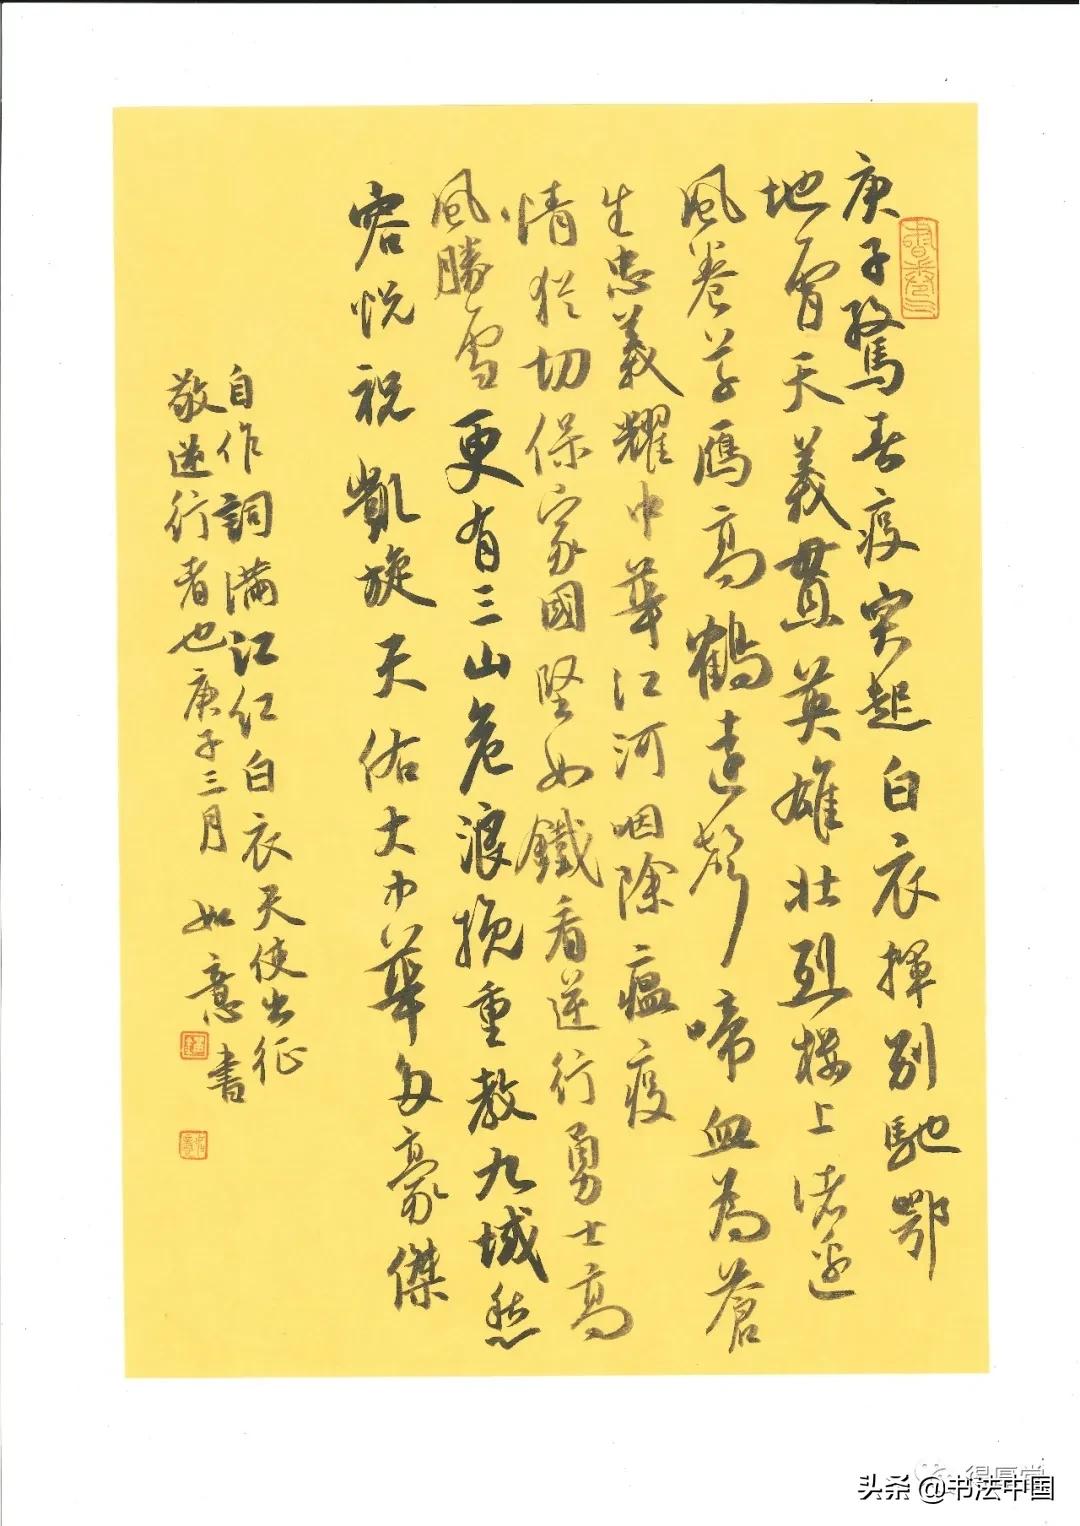 庚子驚春疫突起白衣揮別馳鄂
地霄天義貫英雄壯烈樓上
風卷草鴈高鶴遠聲啼血為蒼
生忠義耀中華江河咽除瘟疫
情猶切保家國堅如鐵看逆行勇士高
風勝雪更有三山危浪挽重教九域愁
容悅祝凱旋天佑大中華多豪傑
自作詞满江红白衣天使出征
敬逆行者也庚子三月 如意書
得厚堂
头条 @书法中国